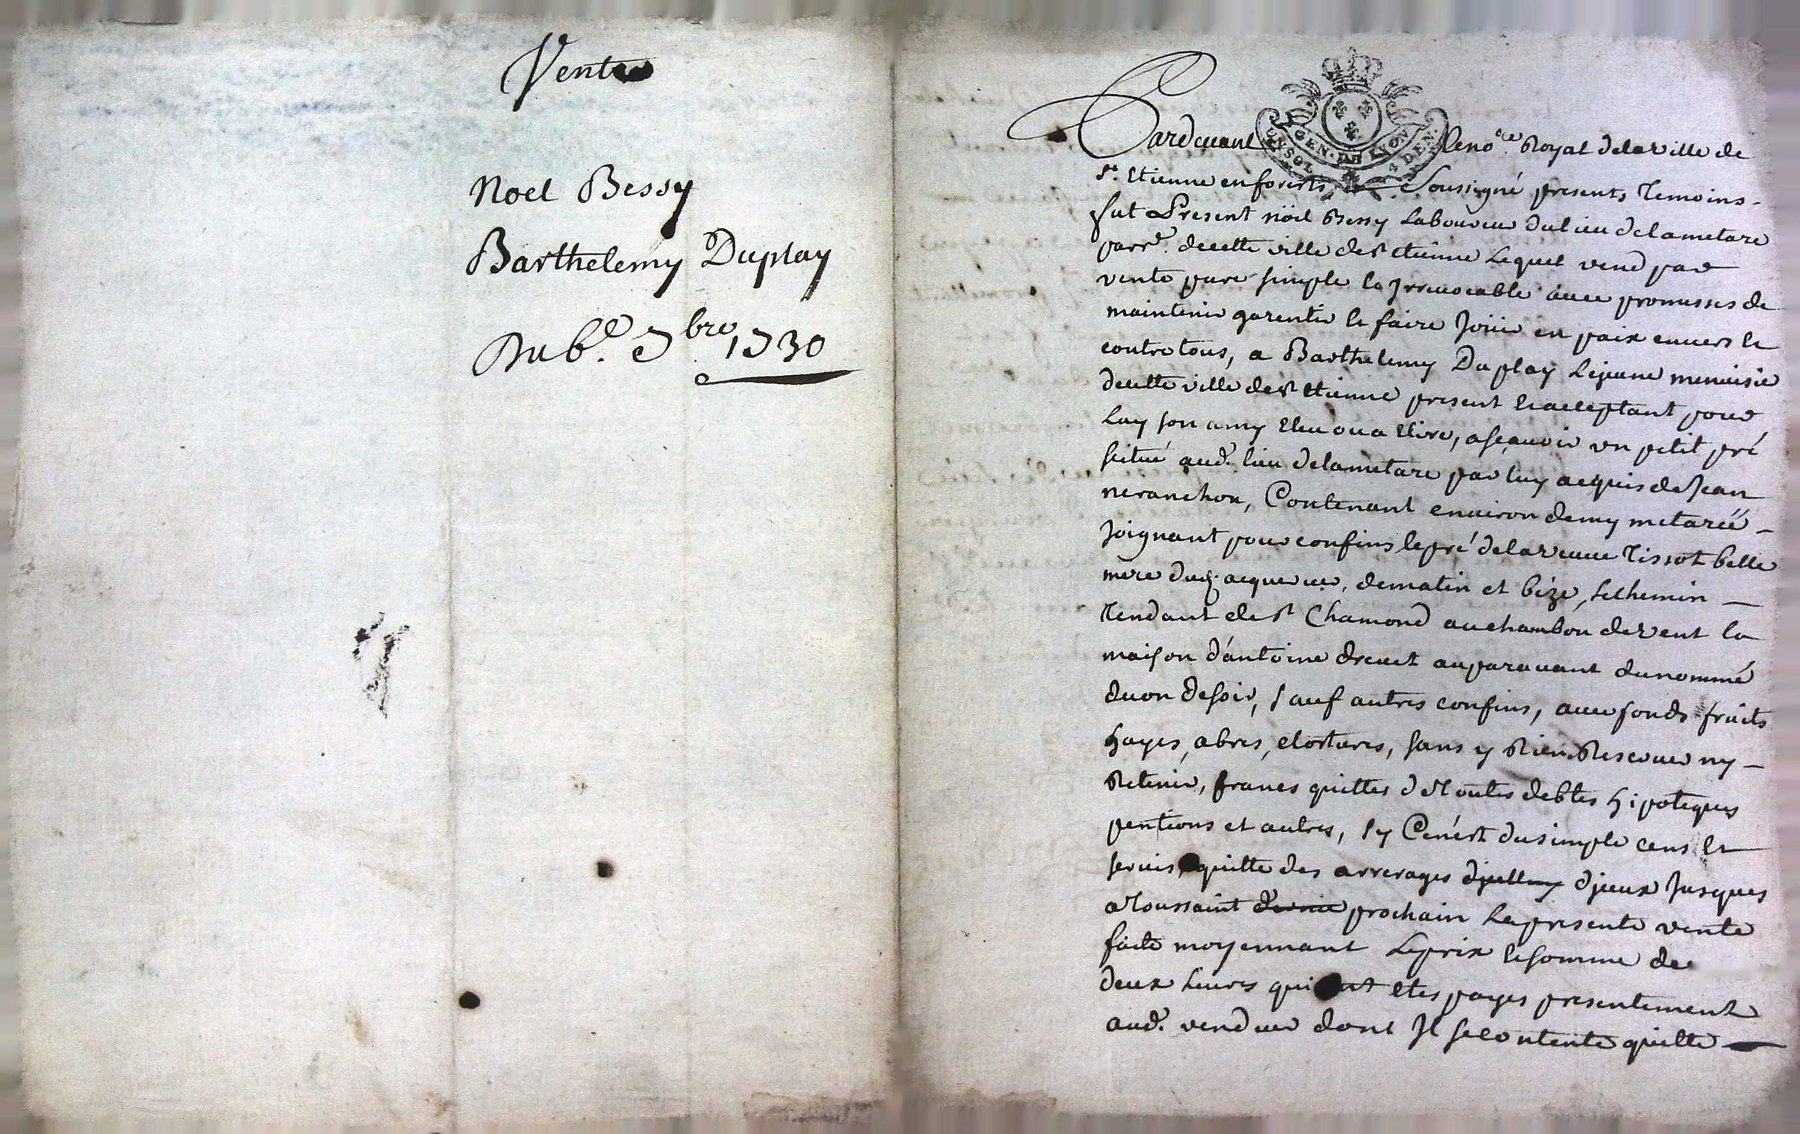 Vente
Noel Bessy
Barthelemy Duplay
Du 6.e 7bre 1730
GEN. DE LYON
Pardevant Le no.re Royal dela ville de
st. Etienne en forests, Sousigné presents temoins
fut Present nöel Bessy Laboureur du lieu de la metare
parr.e decette ville de st Etienne Lequel vend par
vente pure simple & Irrevocable avec promesses de
maintenir garentir & faire Joüir en paix envers &
contre tous, a Barthelemy Duplay Lejeune menuisier
decette ville de st Etienne present & acceptant pour
Luy son amy Eleu ou a Elire, asçavoir un petit pré
scitué aud. lieu dela metare par luy acquis de Jean
neranchon, Contenant environ demy metareë
Joignant pour confins le pré dela veuve Tissot belle
mere dud. acquereur, dematin et bize, Le chemin
Tendant de st Chamond au chambon de vent la
maison d'antoine drevet auparavant du nommé
duon desoir, sauf autres confins, avec fonds fruits
hayes, abres, clostures, sans y Rien Reserver ny
Retenir, francs quittes de Toutes debtes hipoteques
pentions et autres, sy Ce n'est du simple cens &
servis, quitte des arrerages d'jceux Jusques
a Toussaint prochain La presente vente
faite moyennant Le prix & somme de
deux Livres qui ont Etes payes presentement
aud. vendeur dont Il se contente quitte